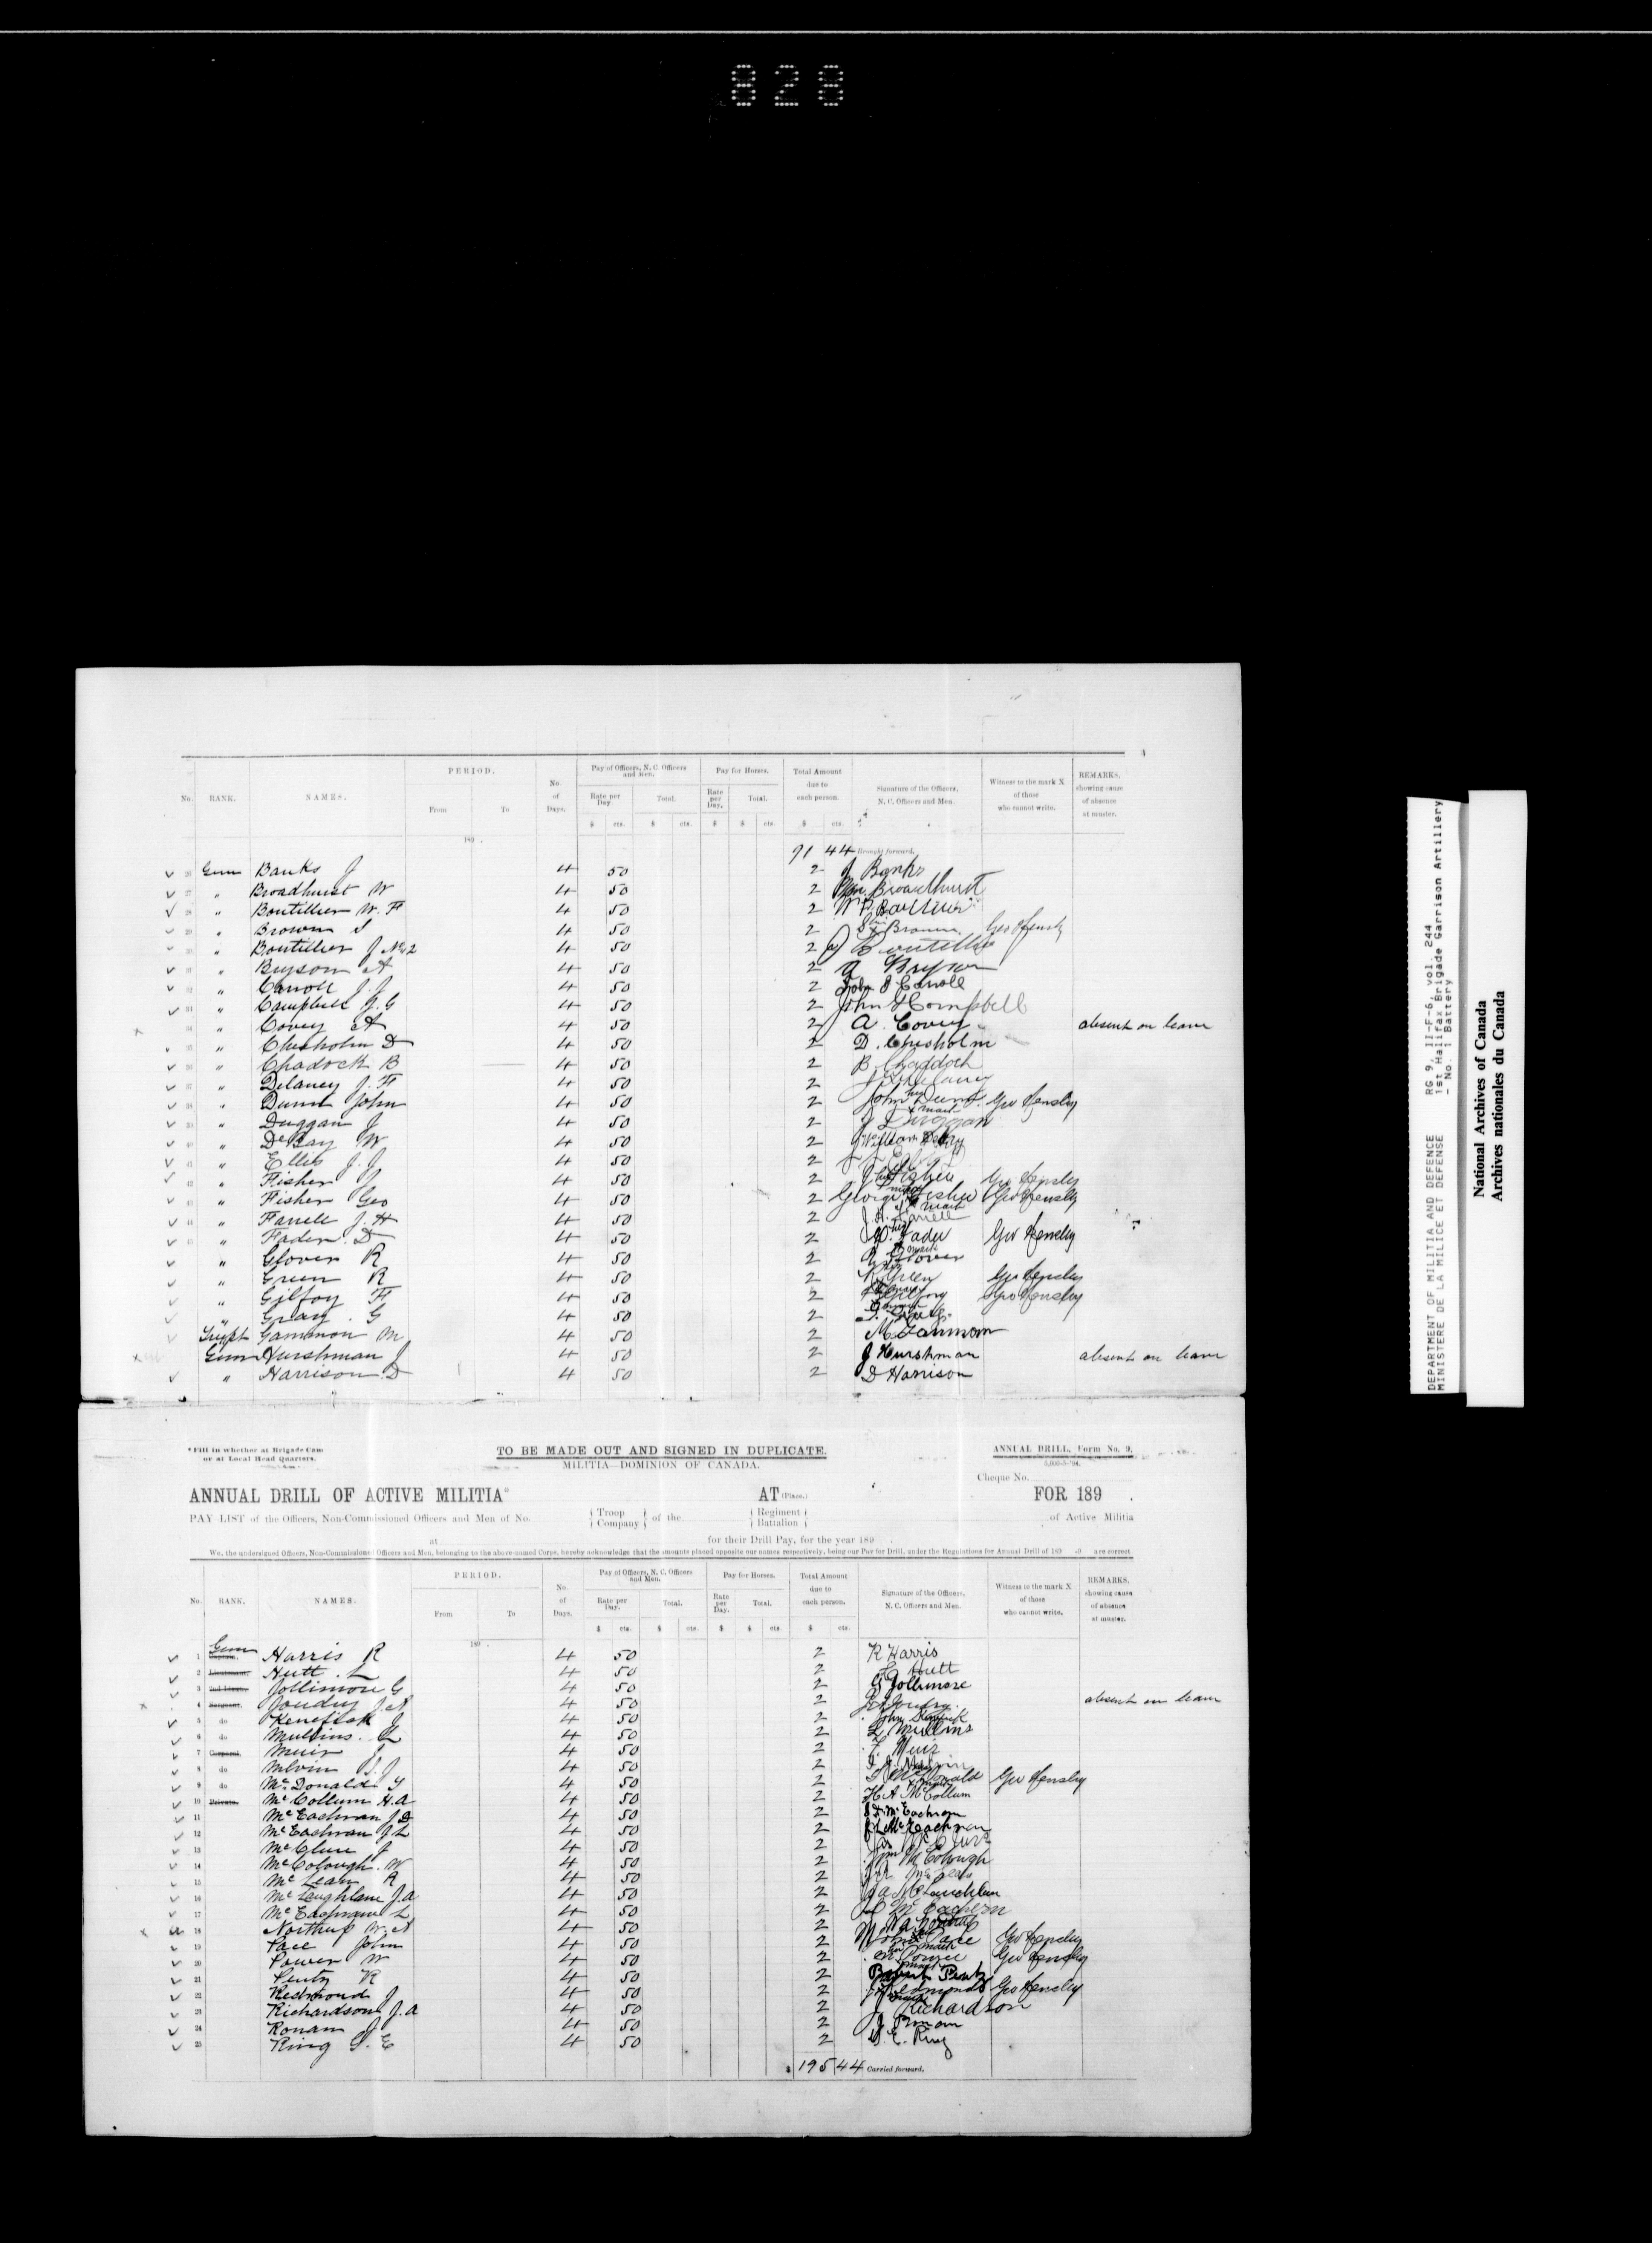 828
PERIOD.
Pay of Officers, N. C. Officers and Men.
Pay for Horses.
Total Amount due to each person.
Signature of the Officers, N. C. Officers and Men.
Witness to the mark X of those who cannot write.
REMARKS, showing cause of absence at muster.
No. RANK. NAMES. From To No. of Days. Rate per Day. Total. Rate per Day. Total.
$ cts. $ cts. $ $ cts. $ cts.
189 .
91 44 Brought forward.
26 Gunn Banks J 4 50 2 J Banks
27 " Broadhurst W 4 50 2 Wm. Broadhurst
28 " Boutillier W. F 4 50 2 W F Boutilier
29 " Brown S 4 50 2 S x Brown Geo Hensley
30 " Boutillier J No 2 4 50 2 J Boutillier
31 " Bryson A 4 50 2 A Bryson
32 " Carroll J. J 4 50 2 John J Carroll
33 " Campbell J. G 4 50 2 John G Campbell
34 " Covey A 4 50 2 A. Covey absent on leave
35 " Chisholm D 4 50 2 D. Chisholm
36 " Chadock B 4 50 2 B. Chaddock
37 " Delaney J. F 4 50 2 J F Delaney
38 " Dunn John 4 50 2 John his x mark Dunn Geo Hensley
39 " Duggan J 4 50 2 J Duggan
40 " DeBay W 4 50 2 William DeBay
41 " Ellis J. J 4 50 2
42 " Fisher J 4 50 2 J his x mark Fisher Geo Hensley
43 " Fisher Geo 4 50 2 George Fisher x mark Geo Hensley
44 " Farrell J. H 4 50 2 J. H. Farrell
45 " Fader D 4 50 2 D. his x mark Fader Geo Hensley
" Glover R 4 50 2 R Glover
" Green R 4 50 2 R Green Geo Hensley
" Gilfoy F 4 50 2 F Gilfoy Geo Hensley
" Gray G 4 50 2 G. Gray
Trumpt Gammon M 4 50 2 M Gammon
Gunn Hurshman J 4 50 2 J Hurshman absent on leave
" Harrison D 4 50 2 D Harrison
* Fill in whether at Brigade Camp or at Local Head Quarters.
TO BE MADE OUT AND SIGNED IN DUPLICATE.
MILITIA—DOMINION OF CANADA.
ANNUAL DRILL, Form No. 9.
5,000-5-'94.
Cheque No.
ANNUAL DRILL OF ACTIVE MILITIA* AT (Place.) FOR 189 .
PAY LIST of the Officers, Non-Commissioned Officers and Men of No. { Troop Company } of the { Regiment Battalion } of Active Militia
at for their Drill Pay, for the year 189 .
We, the undersigned Officers, Non-Commissioned Officers and Men, belonging to the above-named Corps, hereby acknowledge that the amounts placed opposite our names respectively, being our Pay for Drill, under the Regulations for Annual Drill of 189 -9 are correct
PERIOD.
Pay of Officers, N. C. Officers and Men.
Pay for Horses.
Total Amount due to each person.
Signature of the Officers, N. C. Officers and Men.
Witness to the mark X of those who cannot write.
REMARKS, showing cause of absence at muster.
No. RANK. NAMES. From To No. of Days. Rate per Day. Total. Rate per Day. Total.
$ cts. $ cts. $ $ cts. $ cts.
189 .
1 Gunn Harris R 4 50 2 R Harris
2 Lieutenant. Hutt. L 4 50 2 L Hutt
3 2nd Lieut. Jollimore G 4 50 2 G Jollimore
4 Sergeant. Joudry J. A 4 50 2 J. A Joudry. absent on leave
5 do Kenefick J 4 50 2 John Kenefick
6 do Mullins. L 4 50 2 L Mullins
7 Corporal. Muir J 4 50 2 J. Muir
8 do Melvin J. J 4 50 2 J. J. Melvin
9 do McDonald Y 4 50 2 McDonald x mark Geo Hensley
10 Private. McCollum H. A 4 50 2 H A McCollum
11 McEachran J D 4 50 2 J D McEachran
12 McEachran J L 4 50 2 J L McEachran
13 McClure J 4 50 2 Jas McClure
14 McCologh. W 4 50 2 Wm McCologh
15 McLean R 4 50 2 R McLean
16 McLaughlane J. A 4 50 2 J A McLauchlan
17 McEachrane L 4 50 2 L McEachern
18 Northup W. A 4 50 2 W A Northup
19 Pace John 4 50 2 John Pace x mark Geo Hensley
20 Power W 4 50 2 W Power x mark Geo Hensley
21 Pentz R 4 50 2 Robert Pentz
22 Redmond J 4 50 2 J Redmond x mark Geo Hensley
23 Richardson J. A 4 50 2 J Richardson
24 Ronan J 4 50 2 J Ronan
25 Ring G. E 4 50 2 G. E. Ring
$ 195 44 Carried forward.
DEPARTMENT OF MILITIA AND DEFENCE RG 9, II-F-6, vol. 244
MINISTERE DE LA MILICE ET DEFENSE 1st Halifax Brigade Garrison Artillery
- No. 1 Battery
National Archives of Canada
Archives nationales du Canada